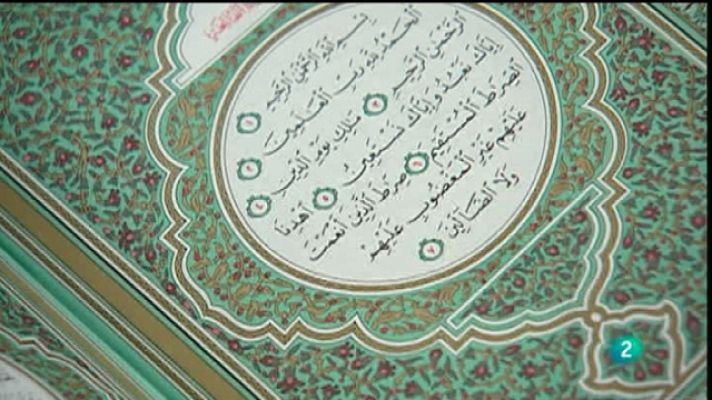 بِسْمِ ٱللَّهِ ٱلرَّحْمَٰنِ ٱلرَّحِيمِ ١
ٱلْحَمْدُ لِلَّهِ رَبِّ ٱلْعَٰلَمِينَ ٢
ٱلرَّحْمَٰنِ ٱلرَّحِيمِ ٣ مَٰلِكِ يَوْمِ ٱلدِّينِ ٤
إِيَّاكَ نَعْبُدُ وَإِيَّاكَ نَسْتَعِينُ ٥ ٱهْدِنَا
ٱلصِّرَٰطَ ٱلْمُسْتَقِيمَ ٦ صِرَٰطَ ٱلَّذِينَ أَنْعَمْتَ
عَلَيْهِمْ غَيْرِ ٱلْمَغْضُوبِ عَلَيْهِمْ
وَلَا ٱلضَّآلِّينَ ٧
2